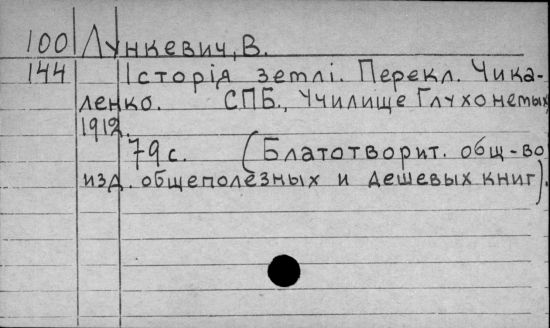 100 Лункевич, В.
144 Історія землі. Перекл. Чика-
ленко. СПБ., Училище Глухонемых,
1912.
79с. (Благотворит. общ-во
изд. общеполезных и дешевых книг).